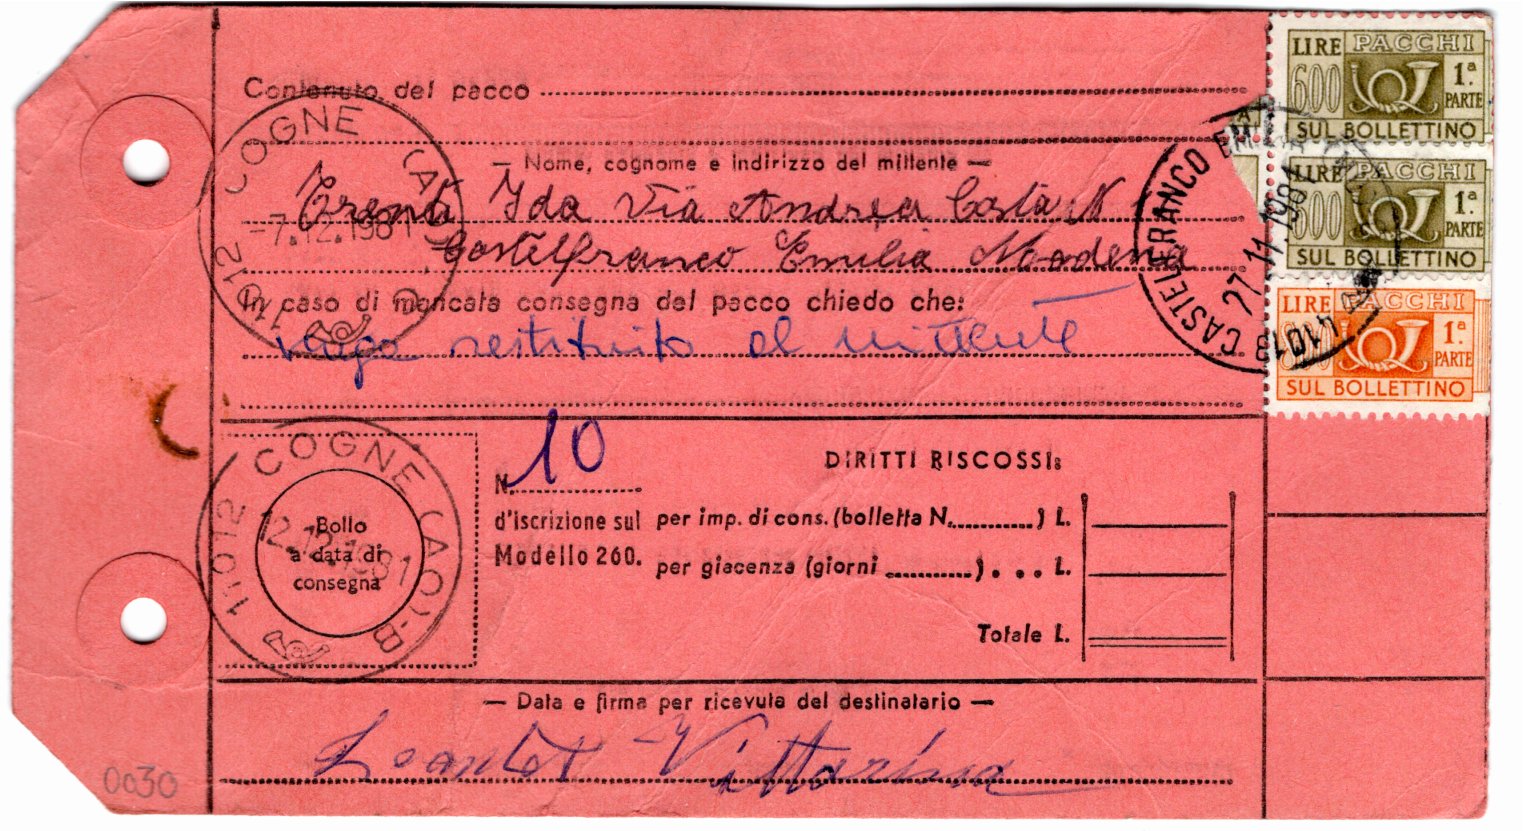 Contenuto del pacco
— Nome, cognome e indirizzo del mittente —
Ida Via Andrea Costa N
Castelfranco Emilia Modena
In caso di mancata consegna del pacco chiedo che:
venga restituito al mittente
LIRE PACCHI
600 1ª PARTE
SUL BOLLETTINO
LIRE PACCHI
600 1ª PARTE
SUL BOLLETTINO
LIRE PACCHI
1ª PARTE
SUL BOLLETTINO
41013 CASTELFRANCO EM
27.11.1981
11012 COGNE (AO)
-7.12.1981
N. 10
d'iscrizione sul
Modello 260.
DIRITTI RISCOSSI:
per imp. di cons. (bolletta N. ) L.
per giacenza (giorni ) . . . L.
Totale L.
Bollo
a data di
consegna
11012 COGNE (AO)-B
12.12.1981
— Data e firma per ricevuta del destinatario —
Vittorina
0030